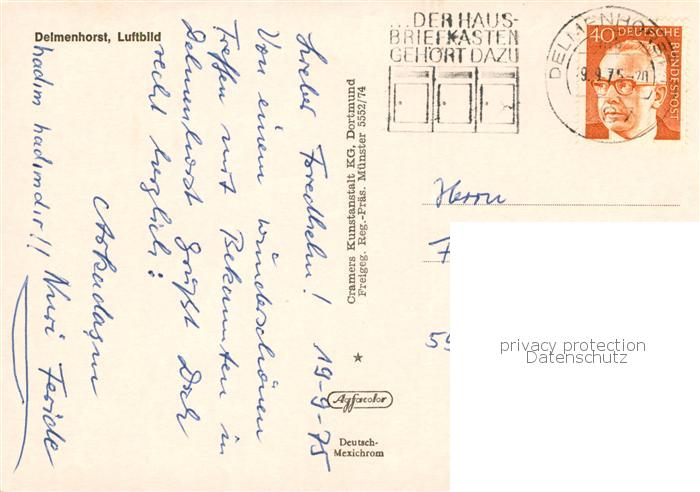 Delmenhorst, Luftbild
Lieber Friedhelm! 19-9-75
Von einem wunderschönen
Treffen mit Bekannten in
Delmenhorst grüßt Dich
recht herzlich:
Arkadaşın
hadım hadımdır!! Nuri Feride
Cramers Kunstanstalt KG, Dortmund
Freigeg. Reg.-Präs. Münster 5552/74
★
Agfacolor
Deutsch-
Mexichrom
...DER HAUS-
BRIEFKASTEN
GEHÖRT DAZU
DELMENHORST
9.75-20
40 DEUTSCHE
BUNDESPOST
Herrn
F
59
privacy protection
Datenschutz